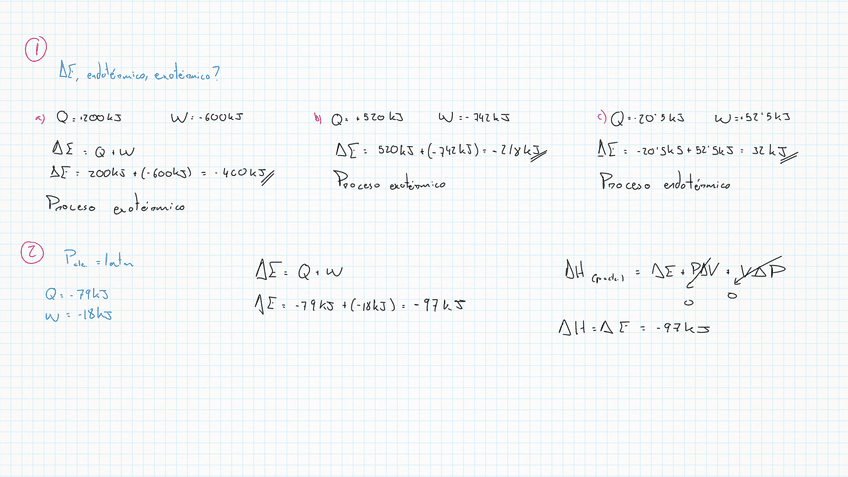 1
ΔE, endotérmico, exotérmico?
a) Q = +200kJ W = -600kJ
ΔE = Q + W
ΔE = 200kJ + (-600kJ) = -400kJ
Proceso exotérmico
b) Q = +520kJ W = -742kJ
ΔE = 520kJ + (-742kJ) = -218kJ
Proceso exotérmico
c) Q = -20'5kJ W = +52'5kJ
ΔE = -20'5kJ + 52'5kJ = 32kJ
Proceso endotérmico
2
P = 1atm
Q = -79kJ
W = -18kJ
ΔE = Q + W
ΔE = -79kJ + (-18kJ) = -97kJ
ΔH = ΔE + PΔV + VΔP
0 0
ΔH = ΔE = -97kJ